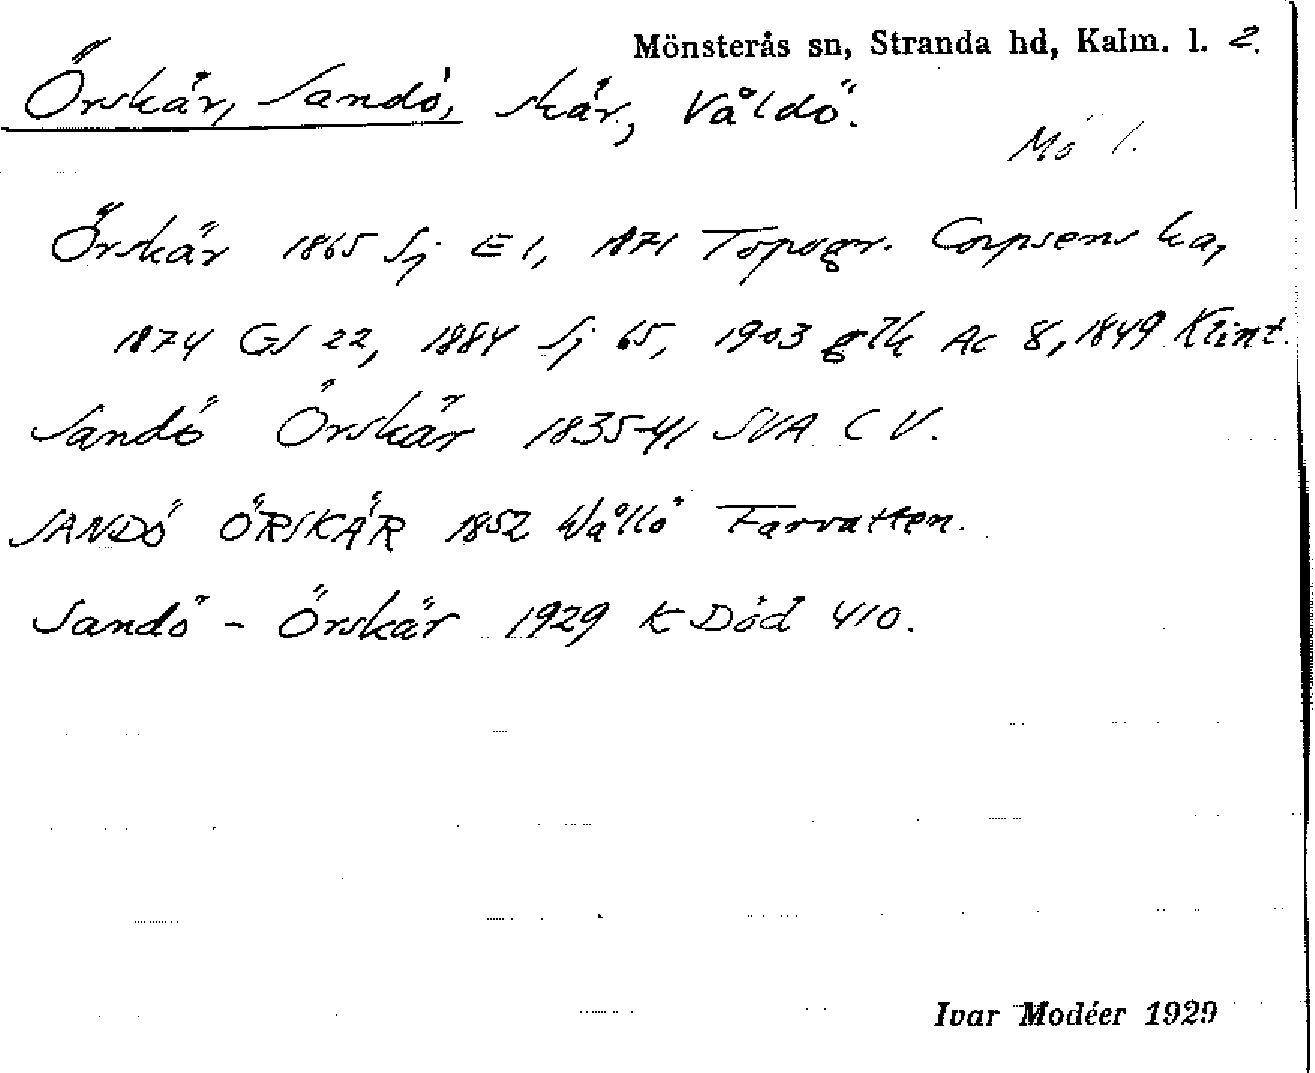 Mönsterås sn, Stranda hd, Kalm. l. 2.
Örskär, Sandö, skär, Våldö.
Mö 1.
Örskär 1865 Sj E 1, 1871 Topogr. Corpsens ka,
1874 GS 22, 1884 Sj 65, 1903 glk Ac 8, 1849 Klint.
Sandö Örskär 1835-41 SVA C V.
SANDÖ ÖRSKÄR 1852 Wållö Farvatten.
Sandö - Örskär 1929 K Död 410.
Ivar Modéer 1929